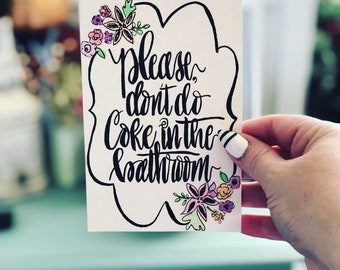 please,
don't do
Coke in the
bathroom